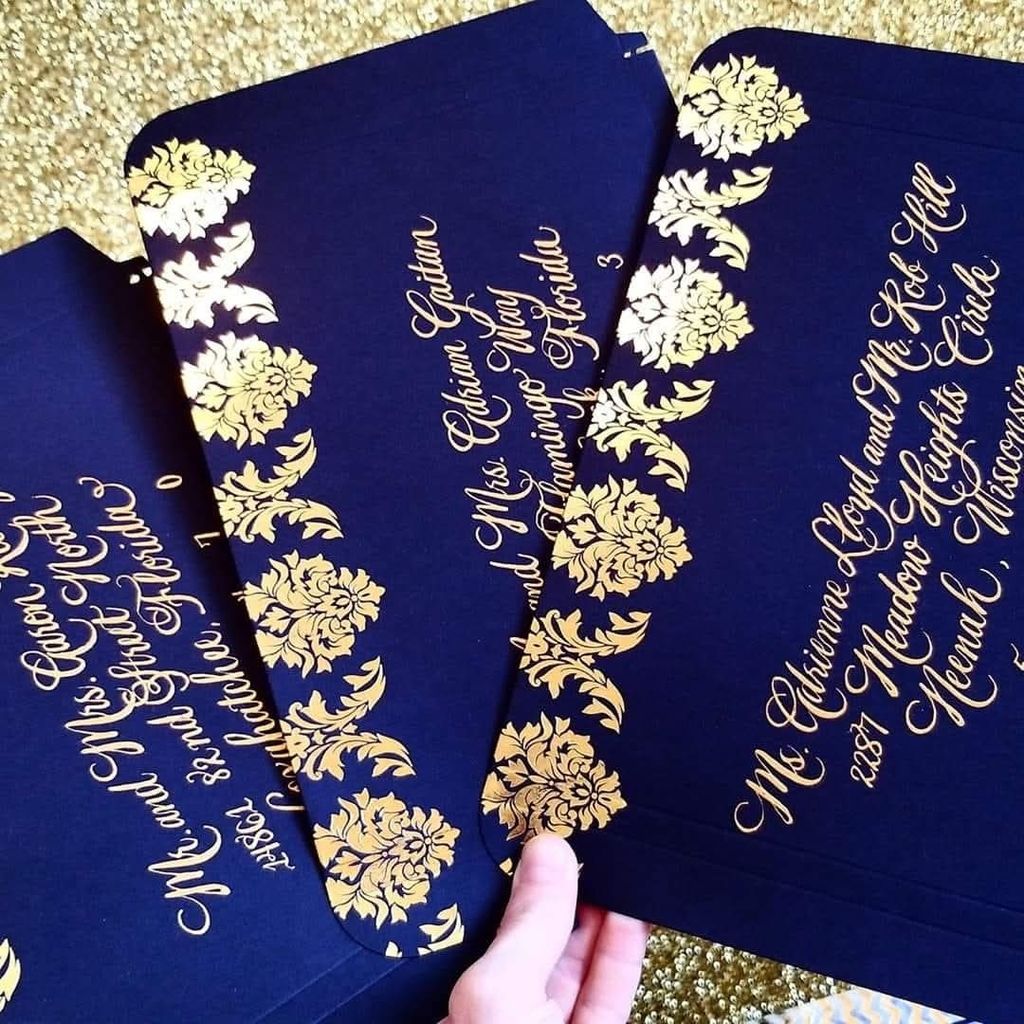 Mr. and Mrs. Eason
14862 82nd Street North
Loxahatchee, Florida
7 0
nd Mrs. Adrian Gaitan
Flamingo Way
Florida
3
Ms. Adrianne Lloyd and Mr. Rob Hill
2287 Meadow Heights Circle
Neenah, Wisconsin
5